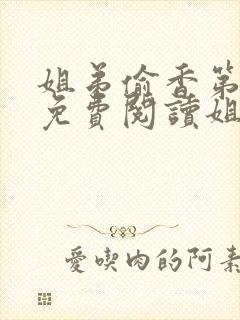 姐弟偷香第
免費閱讀姐
愛喫肉的阿素